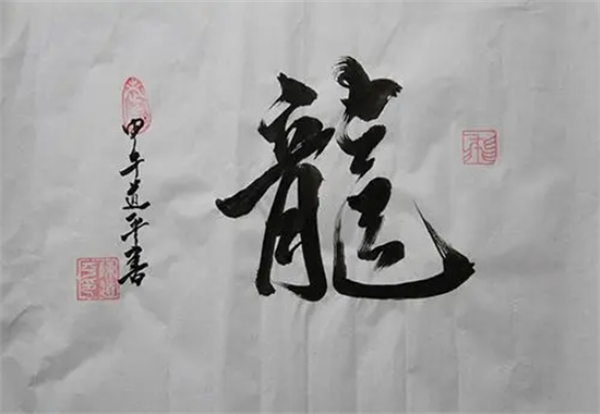 龍
甲午道平書